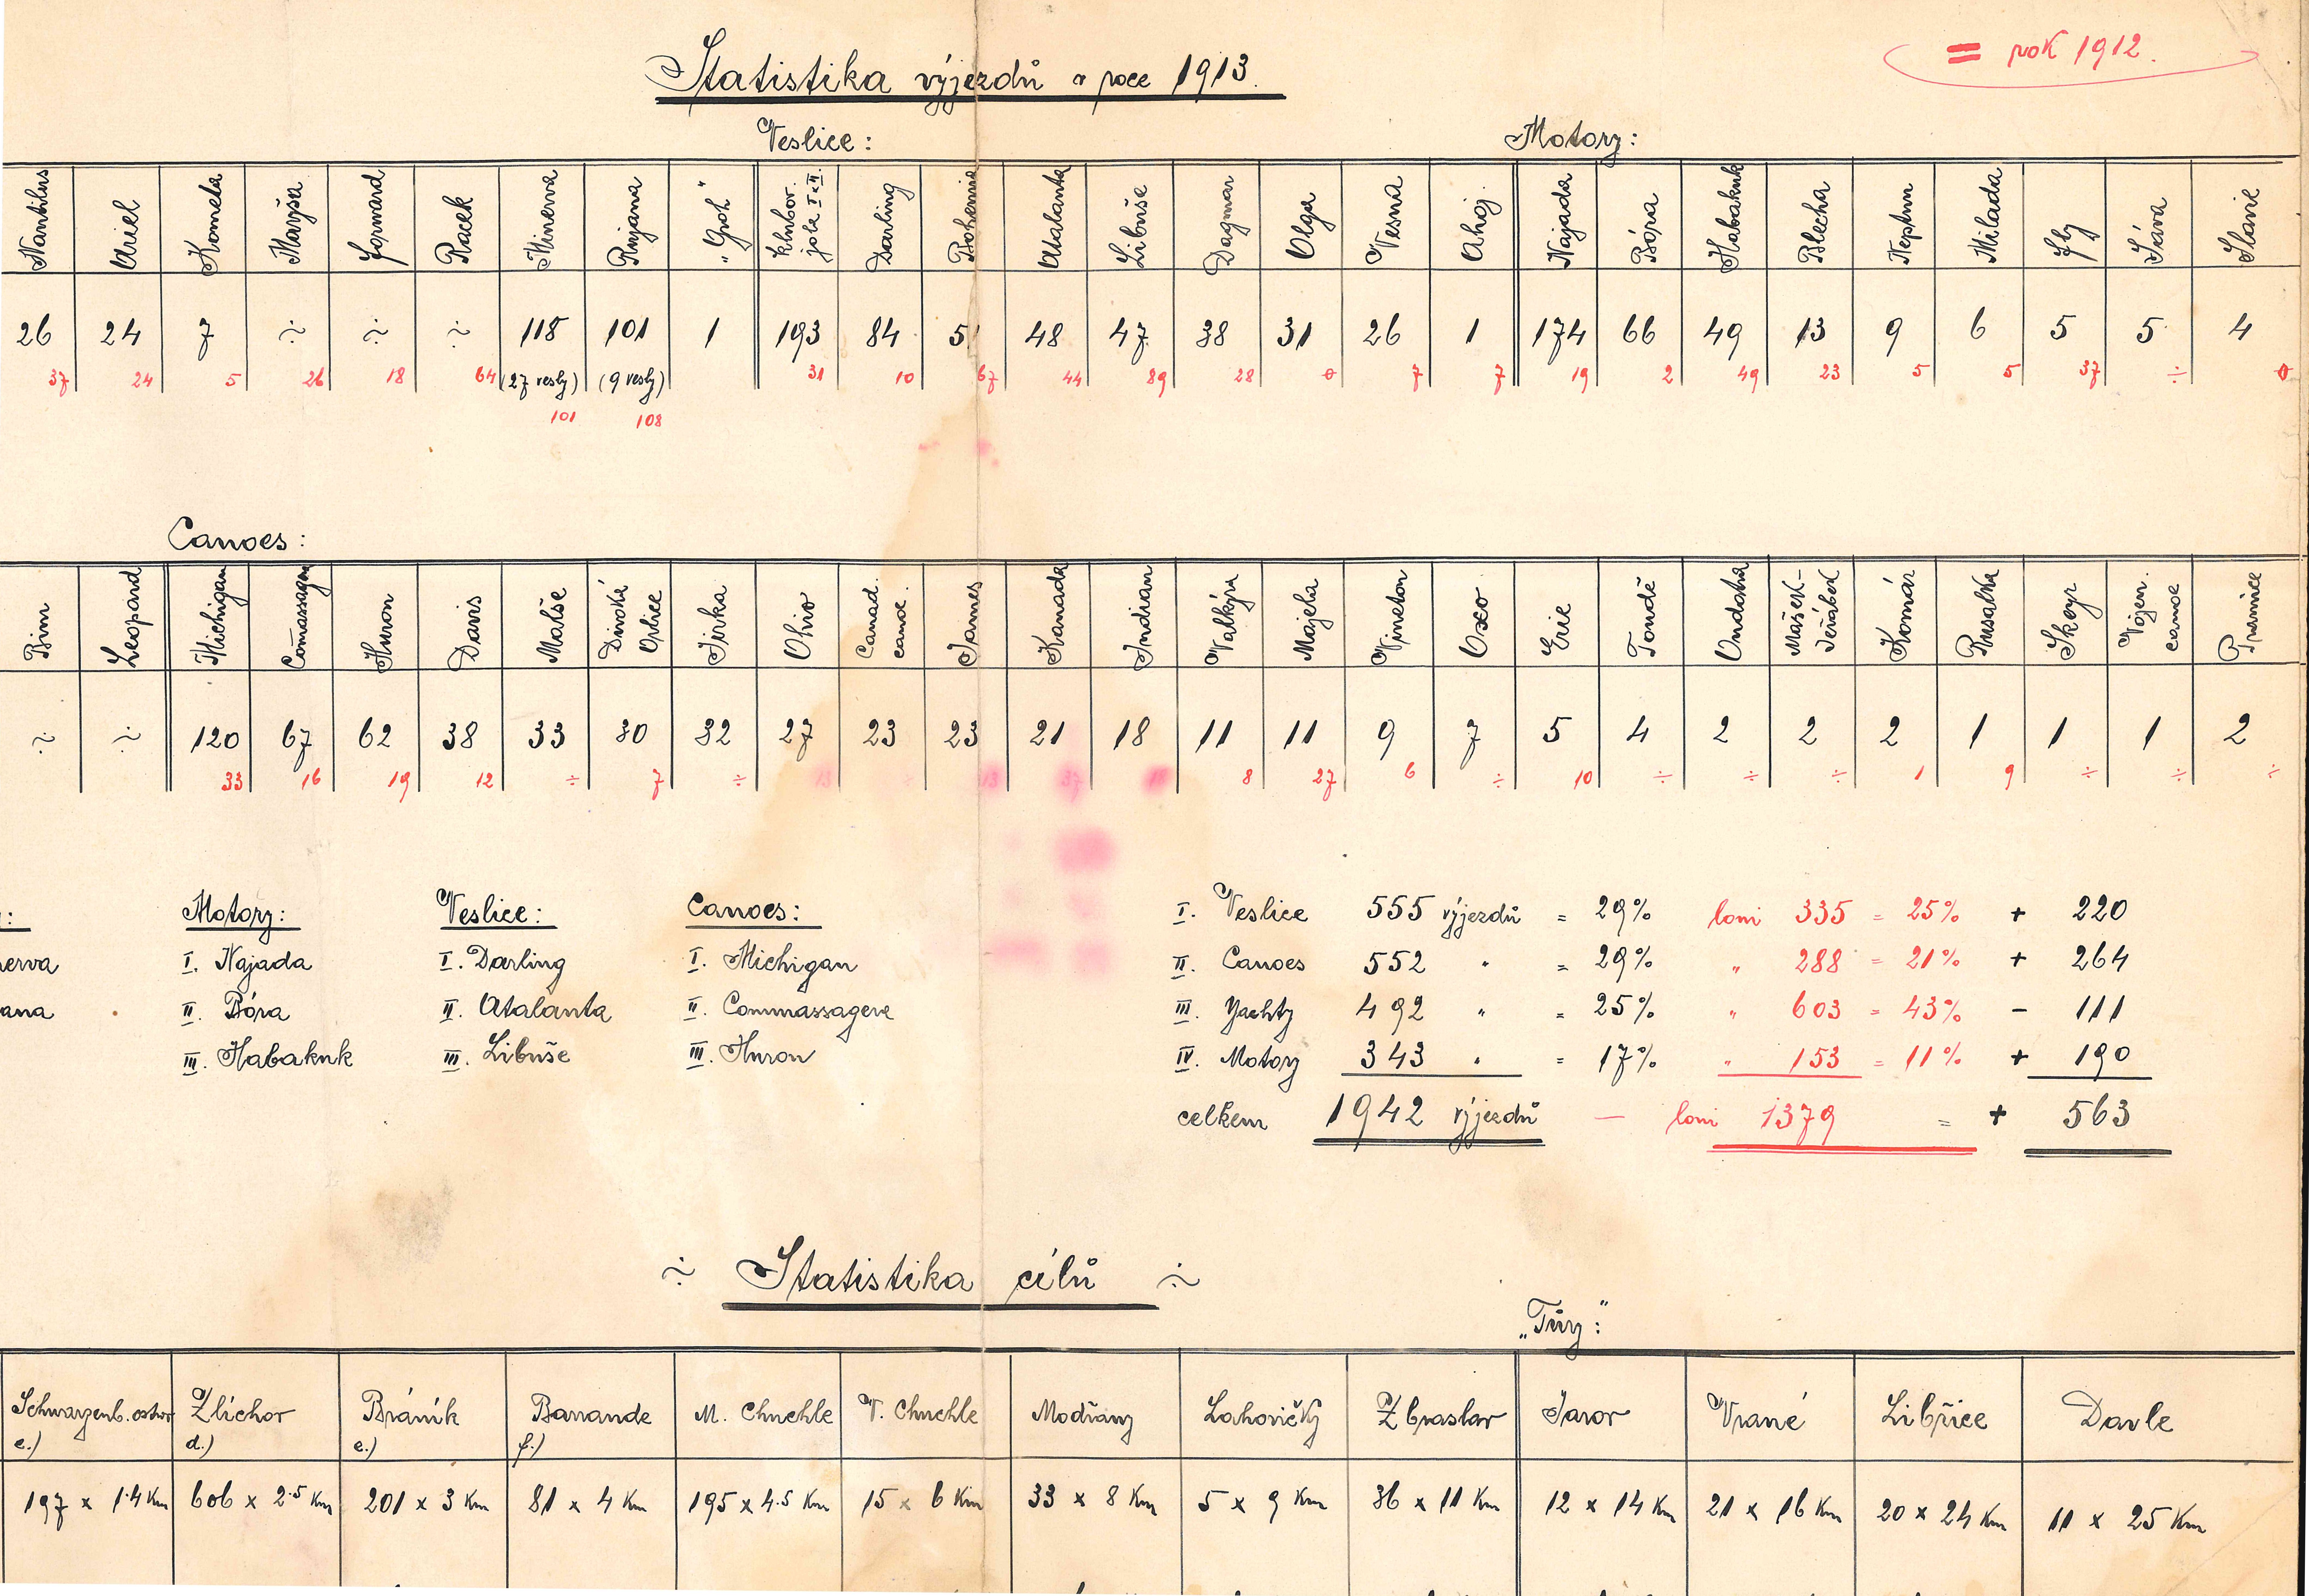 Statistika výjezdů v roce 1913.
= rok 1912.
Veslice:
Motory:
Nautilus Ariel Kometa Maryša Forward Racek Minerva Rujana „Groh“ Klubov. jola I. & II. Darling Bohemia Atalanta Libuše Dagmar Olga Vesna Ahoj. Najada Bóra Habakuk Blecha Neptun Milada Fly Sáva Slavie
26 24 7 ÷ ÷ ÷ 118 101 1 193 84 51 48 47 38 31 26 1 174 66 49 13 9 6 5 5 4
37 24 5 26 18 64 (27 vesly) (9 vesly) 31 10 67 44 89 28 0 7 7 19 2 49 23 5 5 37 ÷ 0
101 108
Canoes:
Bim Leopard Michigan Com̄assagere Huron Davis Malše Divoká Orlice Jirka Ohio Canad. canoe. James Kanada Indian Valkýra Majela Vineton Oxo Erie Tondě Ondatra Mašek-Jeřábek Komár Rusalka Skeyr Vojen. canoe Pramice
÷ ÷ 120 67 62 38 33 30 32 27 23 23 21 18 11 11 9 7 5 4 2 2 2 1 1 1 2
33 16 19 12 ÷ 7 ÷ 13 ÷ 13 37 8 27 6 ÷ 10 ÷ ÷ ÷ 1 9 ÷ ÷ ÷
: Motory: Veslice: Canoes:
erva I. Najada I. Darling I. Michigan
ana II. Bóra II. Atalanta II. Commassagere
III. Habakuk III. Libuše III. Huron
I. Veslice 555 výjezdů = 29% loni 335 = 25% + 220
II. Canoes 552 " = 29% " 288 = 21% + 264
III. Yachty 492 " = 25% " 603 = 43% - 111
IV. Motory 343 " = 17% " 153 = 11% + 190
celkem 1942 výjezdů — loni 1379 = + 563
÷ Statistika cílů ÷
„Túry“:
Schwarzenb. ostrov Zlíchov Bráník Barrande M. Chuchle V. Chuchle Modřany Lahovičky Zbraslav Jarov Vrané Libřice Davle
c.) d.) e.) f.)
197 x 1.4 Km 606 x 2.5 Km 201 x 3 Km 81 x 4 Km 195 x 4.5 Km 15 x 6 Km 33 x 8 Km 5 x 9 Km 36 x 11 Km 12 x 14 Km 21 x 16 Km 20 x 24 Km 11 x 25 Km